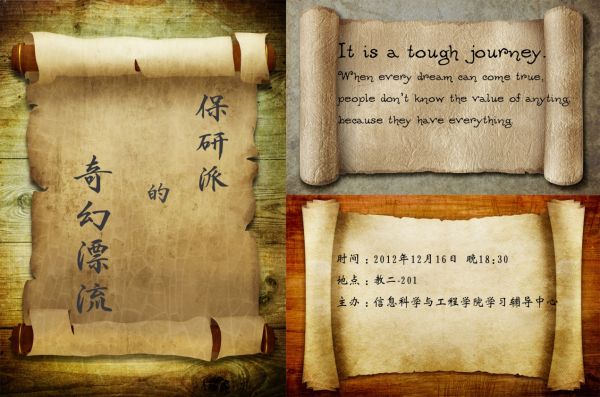 保研派
的
奇幻漂流
It is a tough journey.
When every dream can come true,
people don't know the value of anyting,
because they have everything.
时间：2012年12月16日 晚18:30
地点：教二-201
主办：信息科学与工程学院学习辅导中心